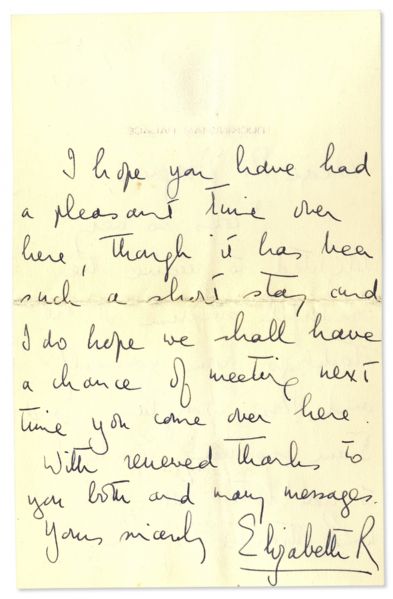 I hope you have had
a pleasant time over
here, though it has been
such a short stay and
I do hope we shall have
a chance of meeting next
time you come over here.
With renewed thanks to
you both and many messages.
Yours sincerely Elizabeth R